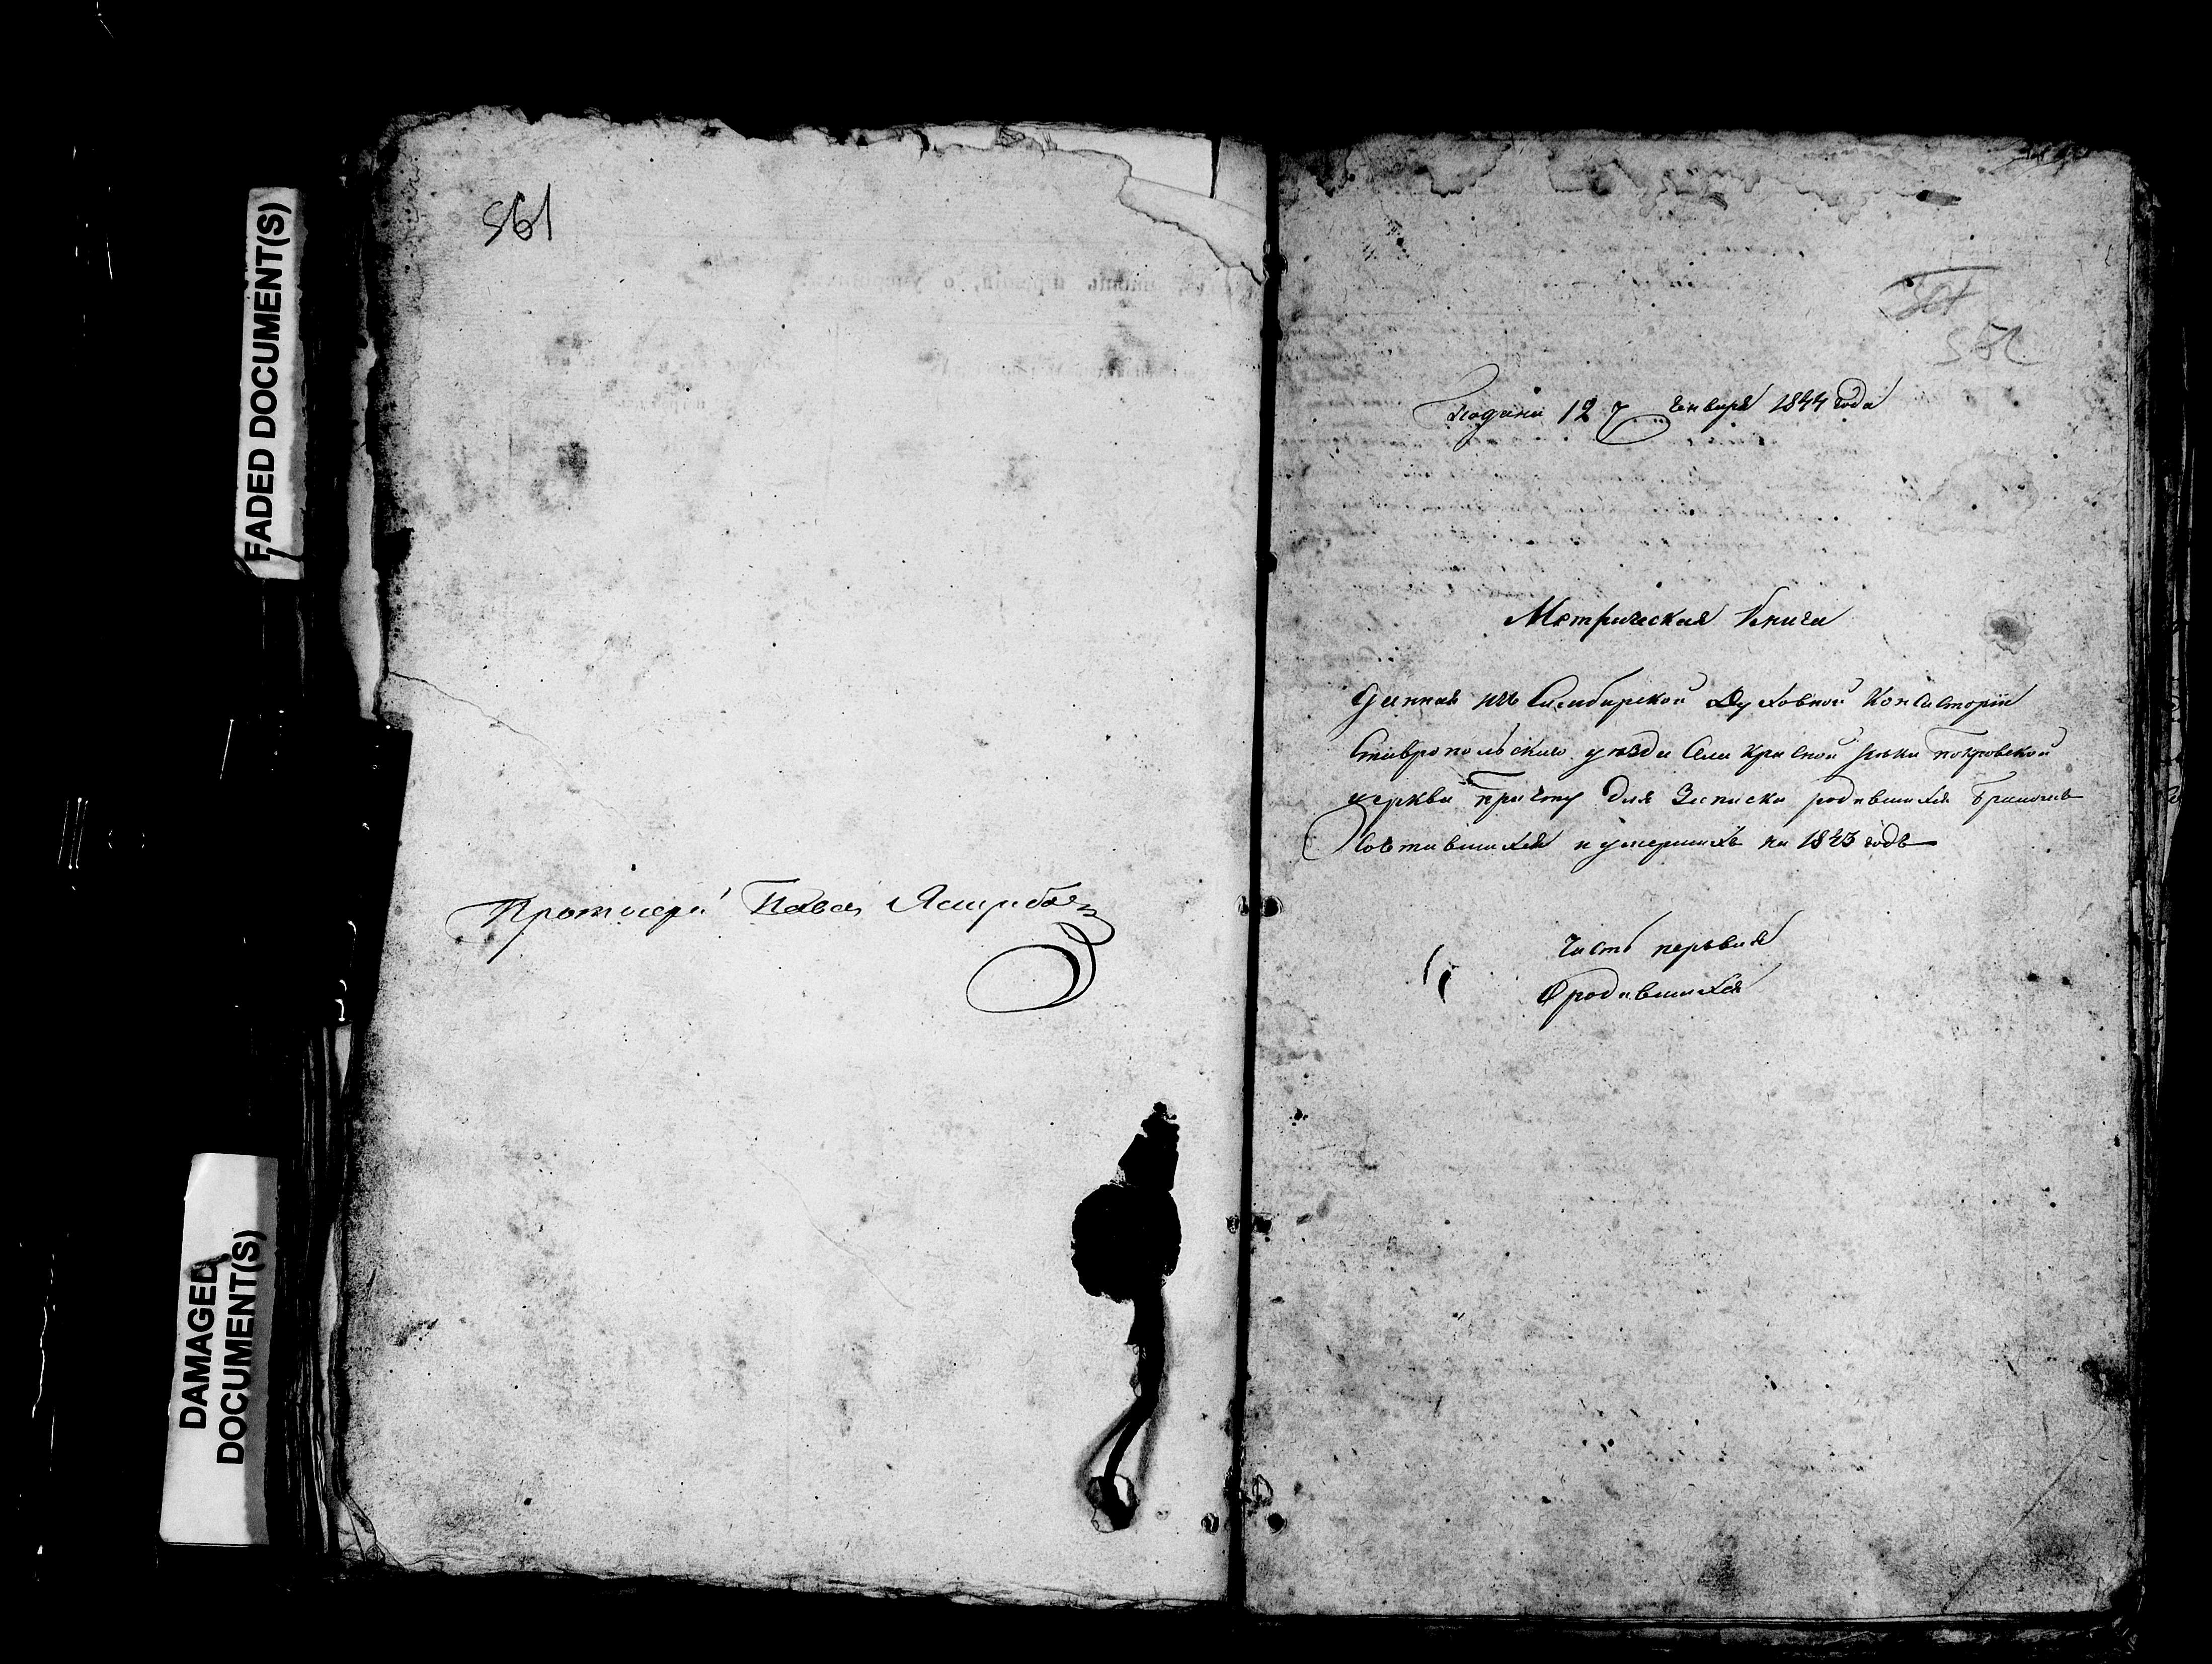 FADED DOCUMENT(S)
DAMAGED
DOCUMENT(S)
561
Протоіерей Павел
562
Подана 12 генваря 1844 года
Метрическая Книга
Данная изъ Симбирской Духовной Консисторіи
Ставропольскаго уезда Села Красной реки Покровской
церкви Причту для Записки родившихся Браком
Сочетавшихся и умершихъ на 1843 годъ
Часть первая
О родившихся